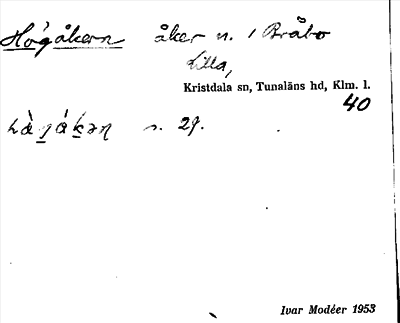 Högåkern åker n. / Bråbo
Lilla,
Kristdala sn, Tunaläns hd, Klm. l.
40
s. 29.
Ivar Modéer 1953